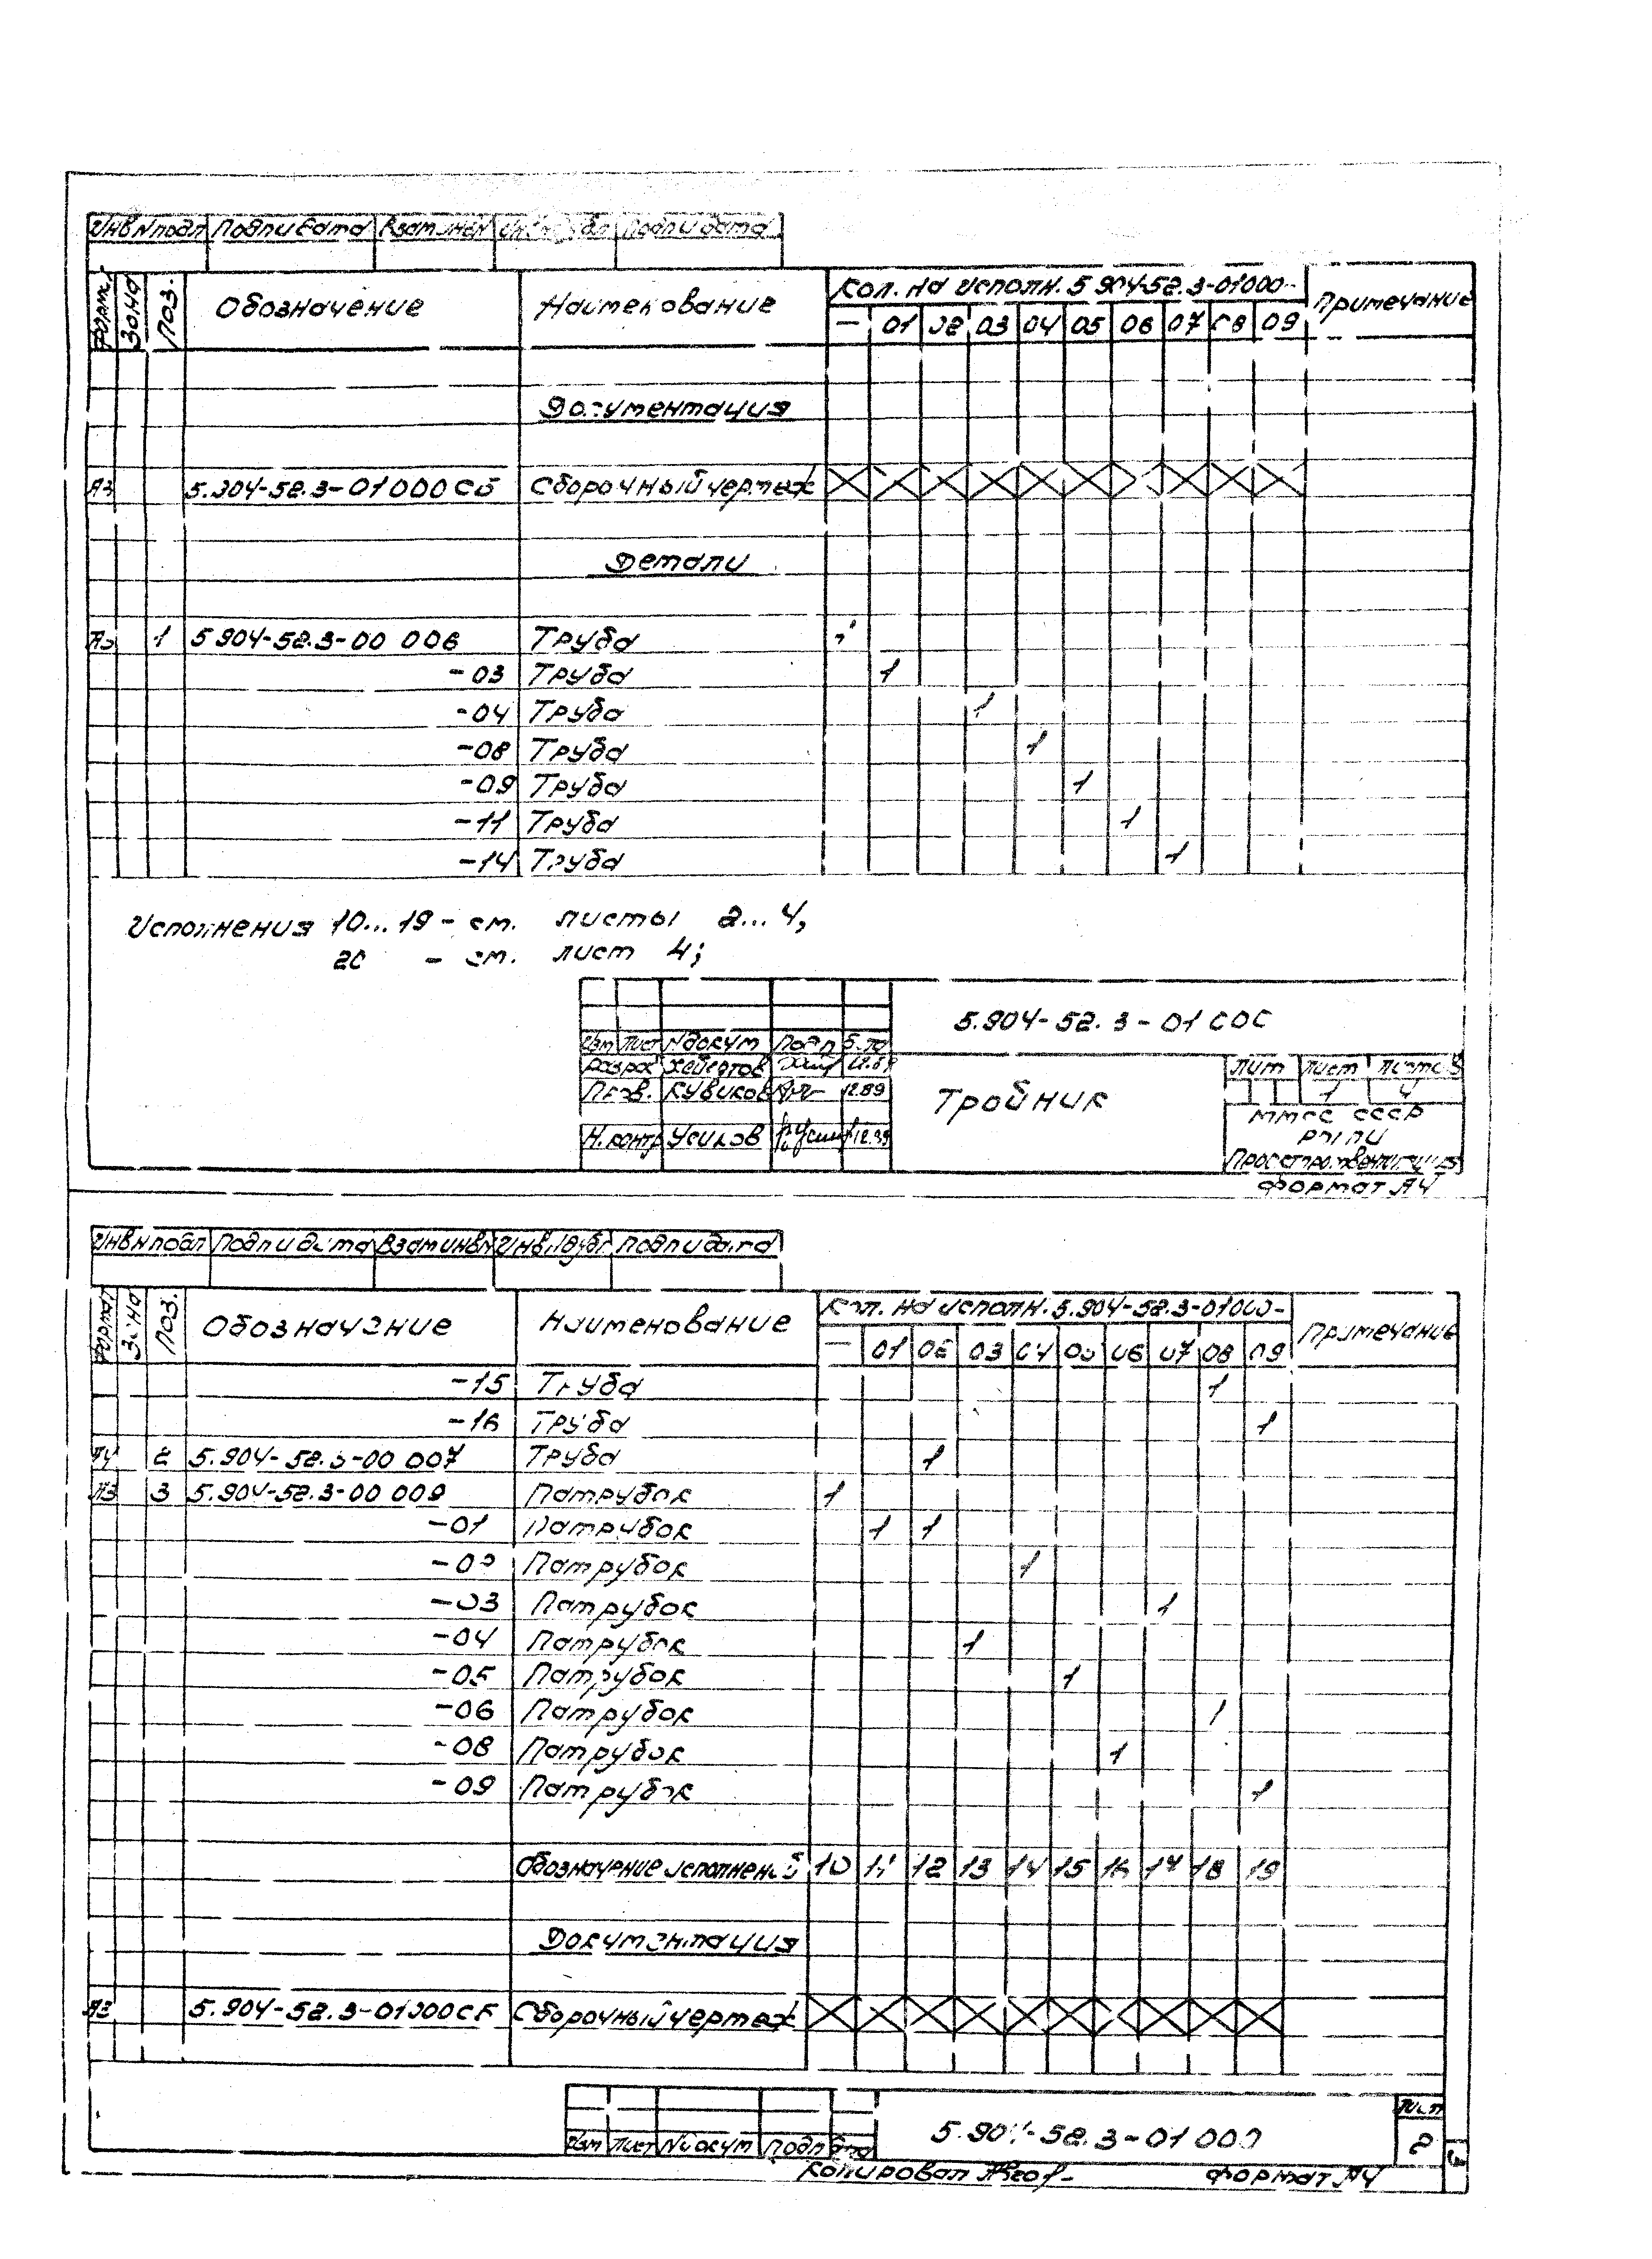 Инв N подл Подп и дата Взам инв Подп и дата
Формат Зона Поз. Обозначение Наименование Кол. на исполн. 5.904-52.3-01000- Примечание
— 01 02 03 04 05 06 07 08 09
Документация
А3 5.904-52.3-01000СБ Сборочный чертеж
Детали
А3 1 5.904-52.3-00 006 Труба
-03 Труба 1
-04 Труба 1
-08 Труба 1
-09 Труба 1
-11 Труба 1
-14 Труба 1
Исполнения 10...19 - см. листы 2...4,
20 - см. лист 4;
5.904-52.3-01 000
Изм Лист N докум Подп Дата
Разраб
Пров. Кувиков 12.89
Н.контр Усиков
Тройник
Лит Лист Листов
1 4
ММСС СССР
Формат А4
Инв N подл Подп и дата Взам инв N Инв. N дубл Подп и дата
Формат Зона Поз. Обозначение Наименование Кол. на исполн. 5.904-52.3-01000- Примечание
— 01 02 03 04 05 06 07 08 09
-15 Труба 1
-16 Труба 1
А4 2 5.904-52.3-00 007 Труба 1
А3 3 5.904-52.3-00 009 Патрубок 1
-01 Патрубок 1 1
-02 Патрубок 1
-03 Патрубок 1
-04 Патрубок 1
-05 Патрубок 1
-06 Патрубок 1
-08 Патрубок 1
-09 Патрубок 1
Обозначение исполнений 10 11 12 13 14 15 16 17 18 19
Документация
А3 5.904-52.3-01000СБ Сборочный чертеж
Изм Лист N докум Подп Дата
5.904-52.3-01 000
Лист
2
Копировал Формат А4